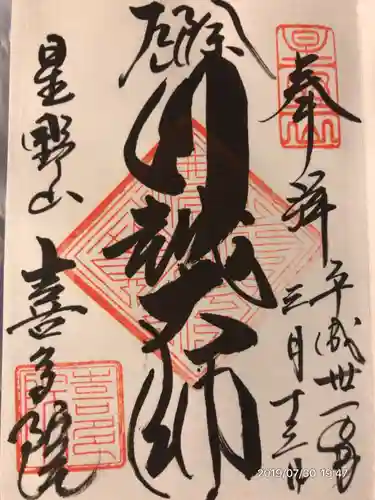 奉拝
平成卅一年
三月十三日
厄除
川越大師
星野山
喜多院
2019/07/30 19:47